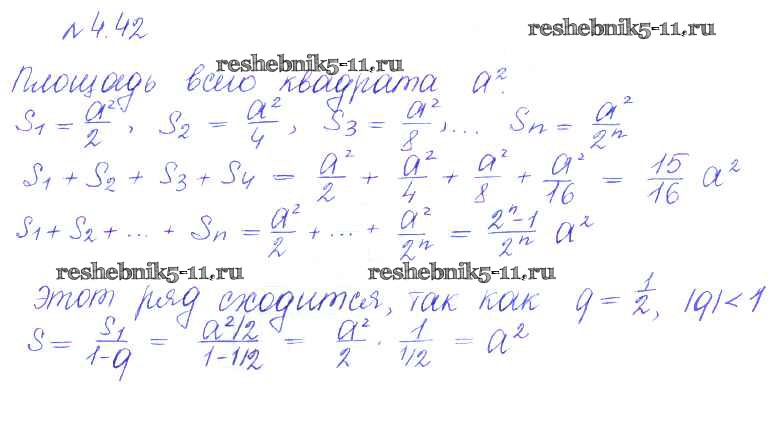 №4.42
reshebnik5-11.ru
reshebnik5-11.ru
Площадь всего квадрата a².
S₁ = a²/2, S₂ = a²/4, S₃ = a²/8, ... Sₙ = a²/2ⁿ
S₁ + S₂ + S₃ + S₄ = a²/2 + a²/4 + a²/8 + a²/16 = 15/16 a²
S₁ + S₂ + ... + Sₙ = a²/2 + ... + a²/2ⁿ = 2ⁿ-1/2ⁿ a²
reshebnik5-11.ru reshebnik5-11.ru
Этот ряд сходится, так как q = 1/2, |q| < 1
S = S₁/1-q = a²/2/1-1/2 = a²/2 · 1/1/2 = a²